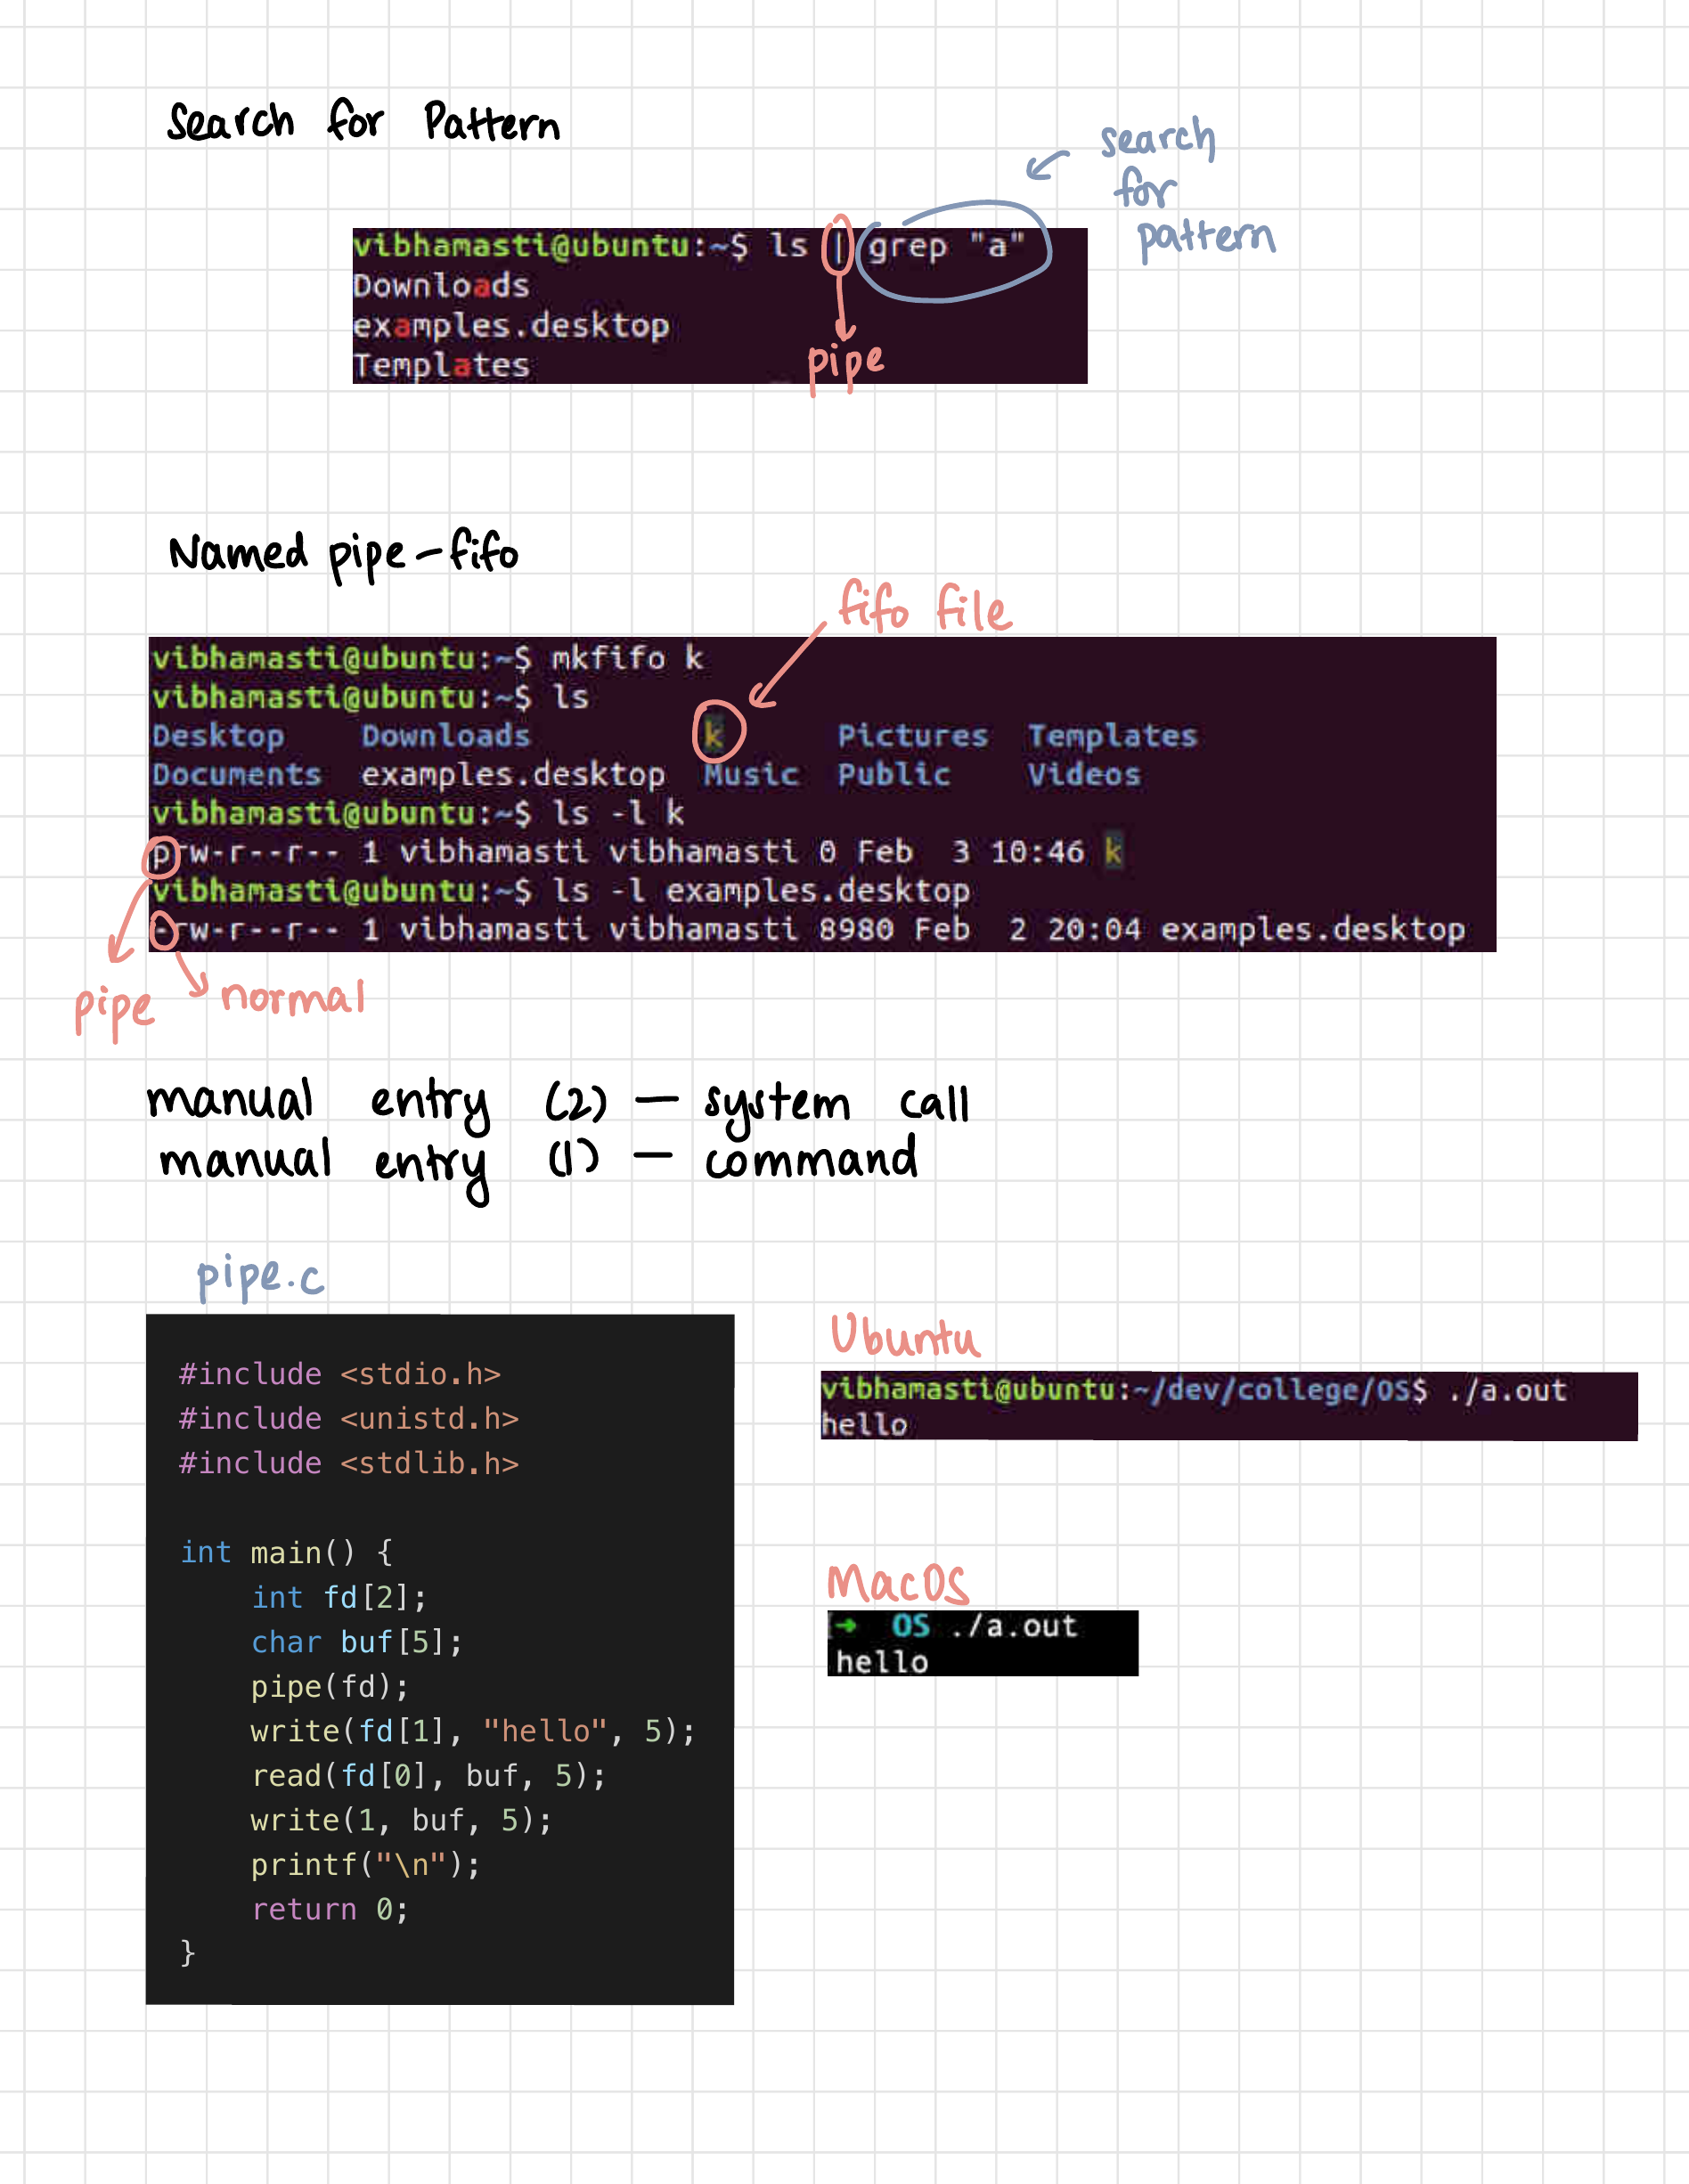 Search for Pattern
search
for
pattern
vibhamasti@ubuntu:~$ ls | grep "a"
Downloads
examples.desktop
Templates
pipe
Named pipe - fifo
fifo file
vibhamasti@ubuntu:~$ mkfifo k
vibhamasti@ubuntu:~$ ls
Desktop    Downloads         k      Pictures  Templates
Documents  examples.desktop  Music  Public    Videos
vibhamasti@ubuntu:~$ ls -l k
prw-r--r-- 1 vibhamasti vibhamasti 0 Feb  3 10:46 k
vibhamasti@ubuntu:~$ ls -l examples.desktop
-rw-r--r-- 1 vibhamasti vibhamasti 8980 Feb  2 20:04 examples.desktop
pipe normal
manual entry (2) — system call
manual entry (1) — command
pipe.c
#include <stdio.h>
#include <unistd.h>
#include <stdlib.h>
int main() {
    int fd[2];
    char buf[5];
    pipe(fd);
    write(fd[1], "hello", 5);
    read(fd[0], buf, 5);
    write(1, buf, 5);
    printf("\n");
    return 0;
}
Ubuntu
vibhamasti@ubuntu:~/dev/college/OS$ ./a.out
hello
MacOS
➜  OS ./a.out
hello